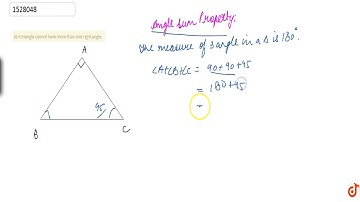 1528048
(ii) A triangle cannot have more than one right angle.
Angle Sum Property:
the measure of 3 angle in a Δ is 180°.
∠A+∠B+∠C = 90+90+45
= 180+45
=
A
45
B
C